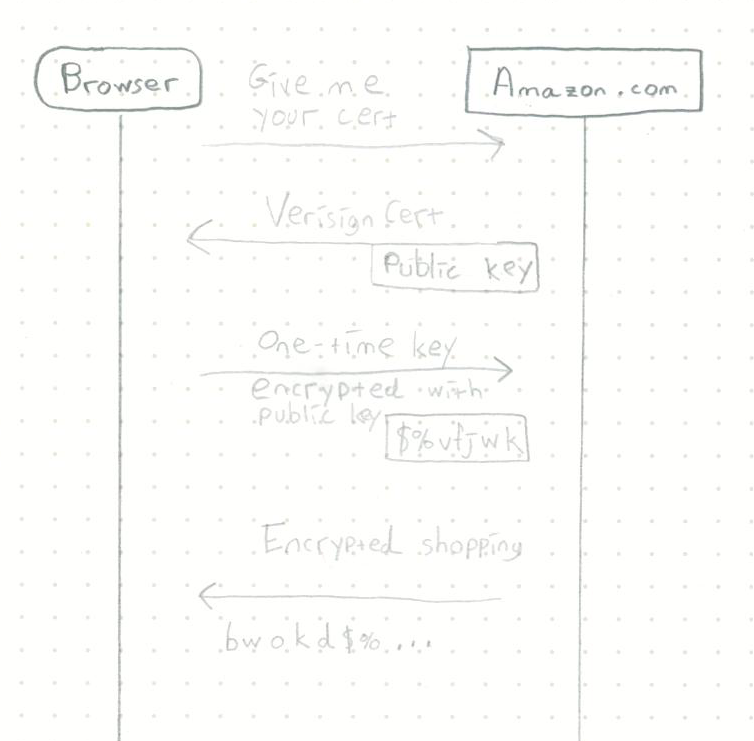 Browser
Amazon.com
Give me
your cert
Verisign Cert
Public key
One-time key
encrypted with
public key
$%vfjwk
Encrypted shopping
bwokd$%...